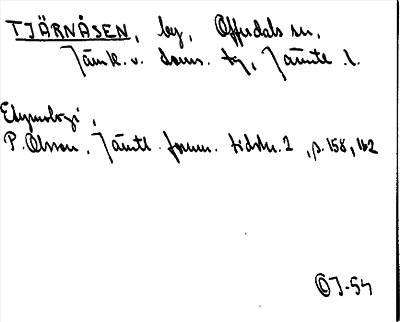 TJÄRNÅSEN, by, Offerdals sn,
Jämt. v. doms. tg, Jämtl. l.
Etymologi,
P. Olsson, Jämtl. fornm. tidskr. 2, p. 158, 162
OJ-54